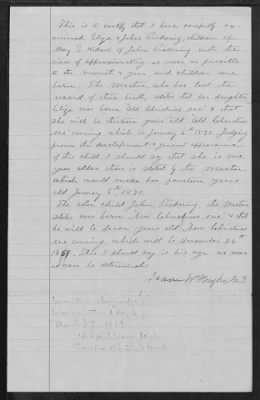 This is to certify that I have carefully ex-
amined Eliza & John Pickering, children of
Mary E. widow of John Pickering with the
view of approximating as near as possible
to the month & year said children were
born. The Mother, who has lost the
record of their birth, states that her daughter
Eliza was born Old Christmas eve & that
she will be thirteen years old Old Christmas
eve coming which is January 5th 1870. Judging
from the development & general appearance
of the child I should say that she is one
year older than is stated by the Mother
which would make her fourteen years
old January 5th 1870.
The other child John Pickering, the Mother
states was born New Christmas eve & that
he will be seven years old New Christmas
eve coming, which will be December 24th
1869. This I should say is his age as near
as can be determined.
Isaac W. Hughes, M.D.